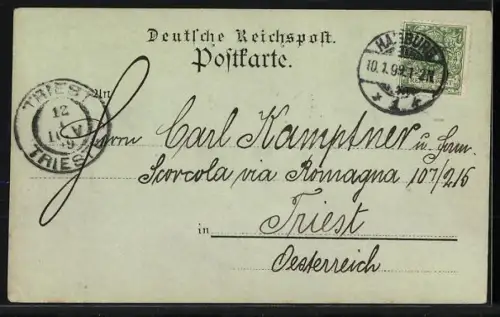 Deutsche Reichspost.
Postkarte.
HAMBURG
10.1.99.1-2N
* 1 k
TRIEST
12
1
TRIEST
An
Herrn Carl Kamptner u. Fam.
Scorcola via Romagna 107/216
in Triest
Oesterreich